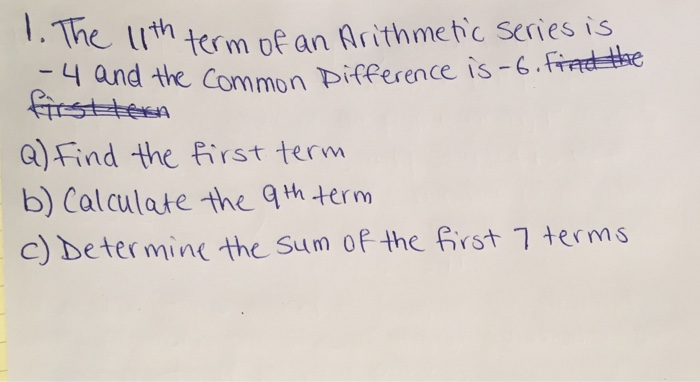 1. The 11th term of an Arithmetic series is
-4 and the Common Difference is -6. Find the
first term
a) Find the first term
b) Calculate the 9th term
c) Determine the sum of the first 7 terms